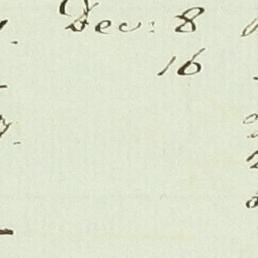 Dec: 8
16